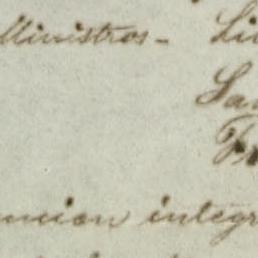 Ministros.- Li
Sa
Fr
uncion integr